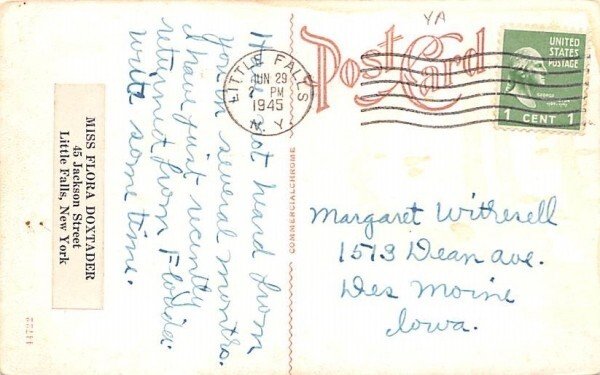 YA
Post Card
LITTLE FALLS
JUN 29
2 PM
1945
N.Y.
UNITED
STATES
POSTAGE
GEORGE
1 CENT 1
Have not heard from
you in several months.
I have just recently
returned from Florida.
Write some time.
MISS FLORA DOXTADER
45 Jackson Street
Little Falls, New York
COMMERCIALCHROME
Margaret Witresell
1513 Dean ave.
Des Moine
Iowa.